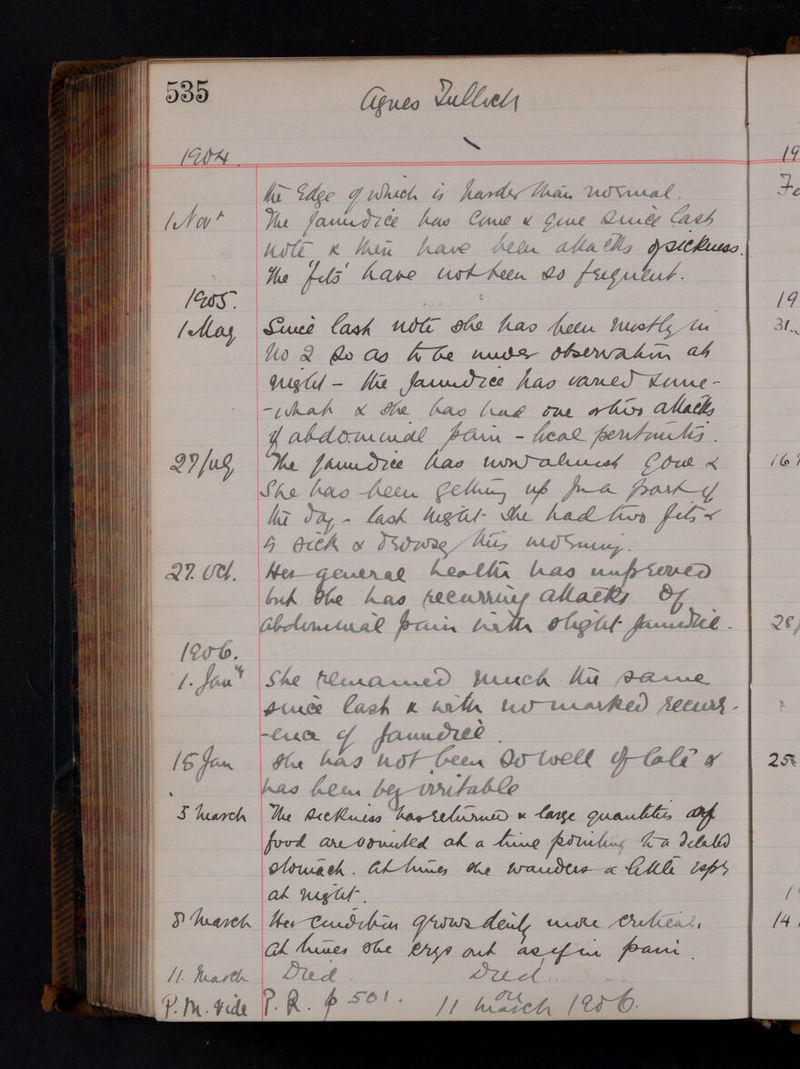 535
Agnes Tulloch
1904
the Edge of which is harder than normal.
1 Novr The jaundice has come & gone since last
note & there have been attacks of sickness.
The 'fits' have not been so frequent.
1905.
1 May Since last note she has been mostly in
No 2 so as to be under observation at
night - the jaundice has varied some-
-what & she has had one or two attacks
of abdominal pain - local peritonitis.
27 July The jaundice has now almost gone &
She has been getting up for a part of
the day - last night she had two fits &
is sick & drowsy this morning.
27. Oct. Her general health has improved
but She has recurring attacks of
abdominal pain with slight jaundice.
1906.
1. Jany She remained much the same
since last & with no marked recurr-
-ence of jaundice.
15 Jan She has not been so well of late &
has been irritable
5 March The sickness has returned & large quantities of
food are vomited at a time pointing to a dilated
stomach. At times she wanders a little
at night.
8 March Her condition grows daily more critical,
At times she crys out as if in pain.
11. March Died. Died on
P.M. Vide P.R. p 501. 11 March 1906.
19
Fe
19
31.
16
28
25
14